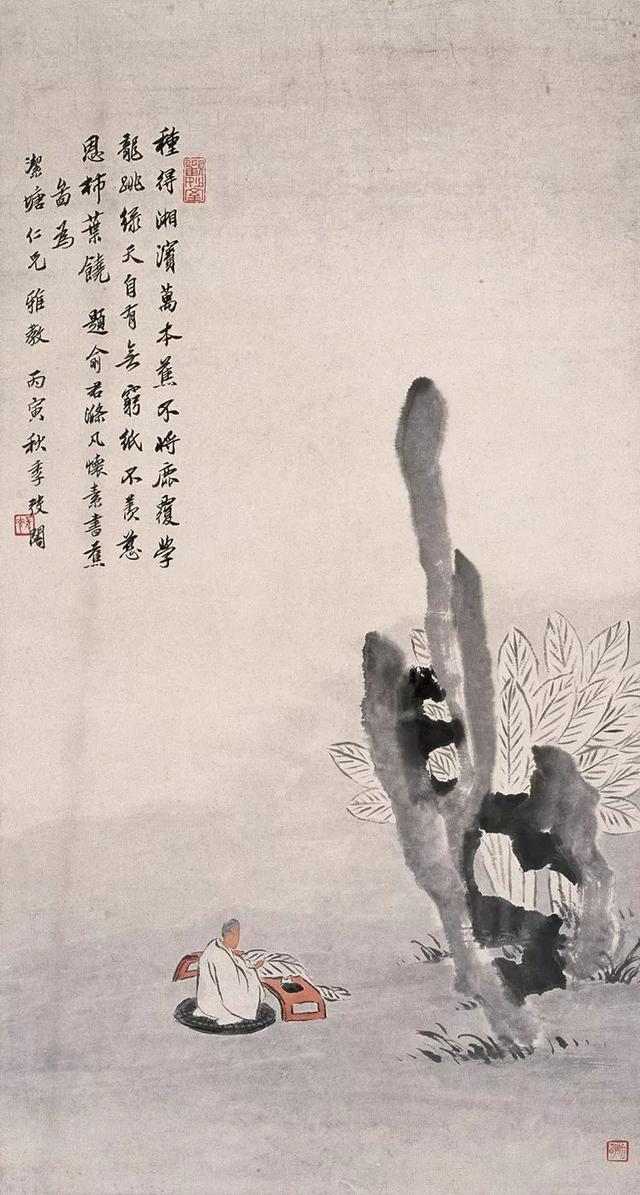 種得湘濱萬本蕉不將鹿覆學
龍跳綠天自有無窮紙不羨慈
恩柿葉饒 題俞君滌凡懷素書蕉
畵為
潔塘仁兄雅教 丙寅秋季